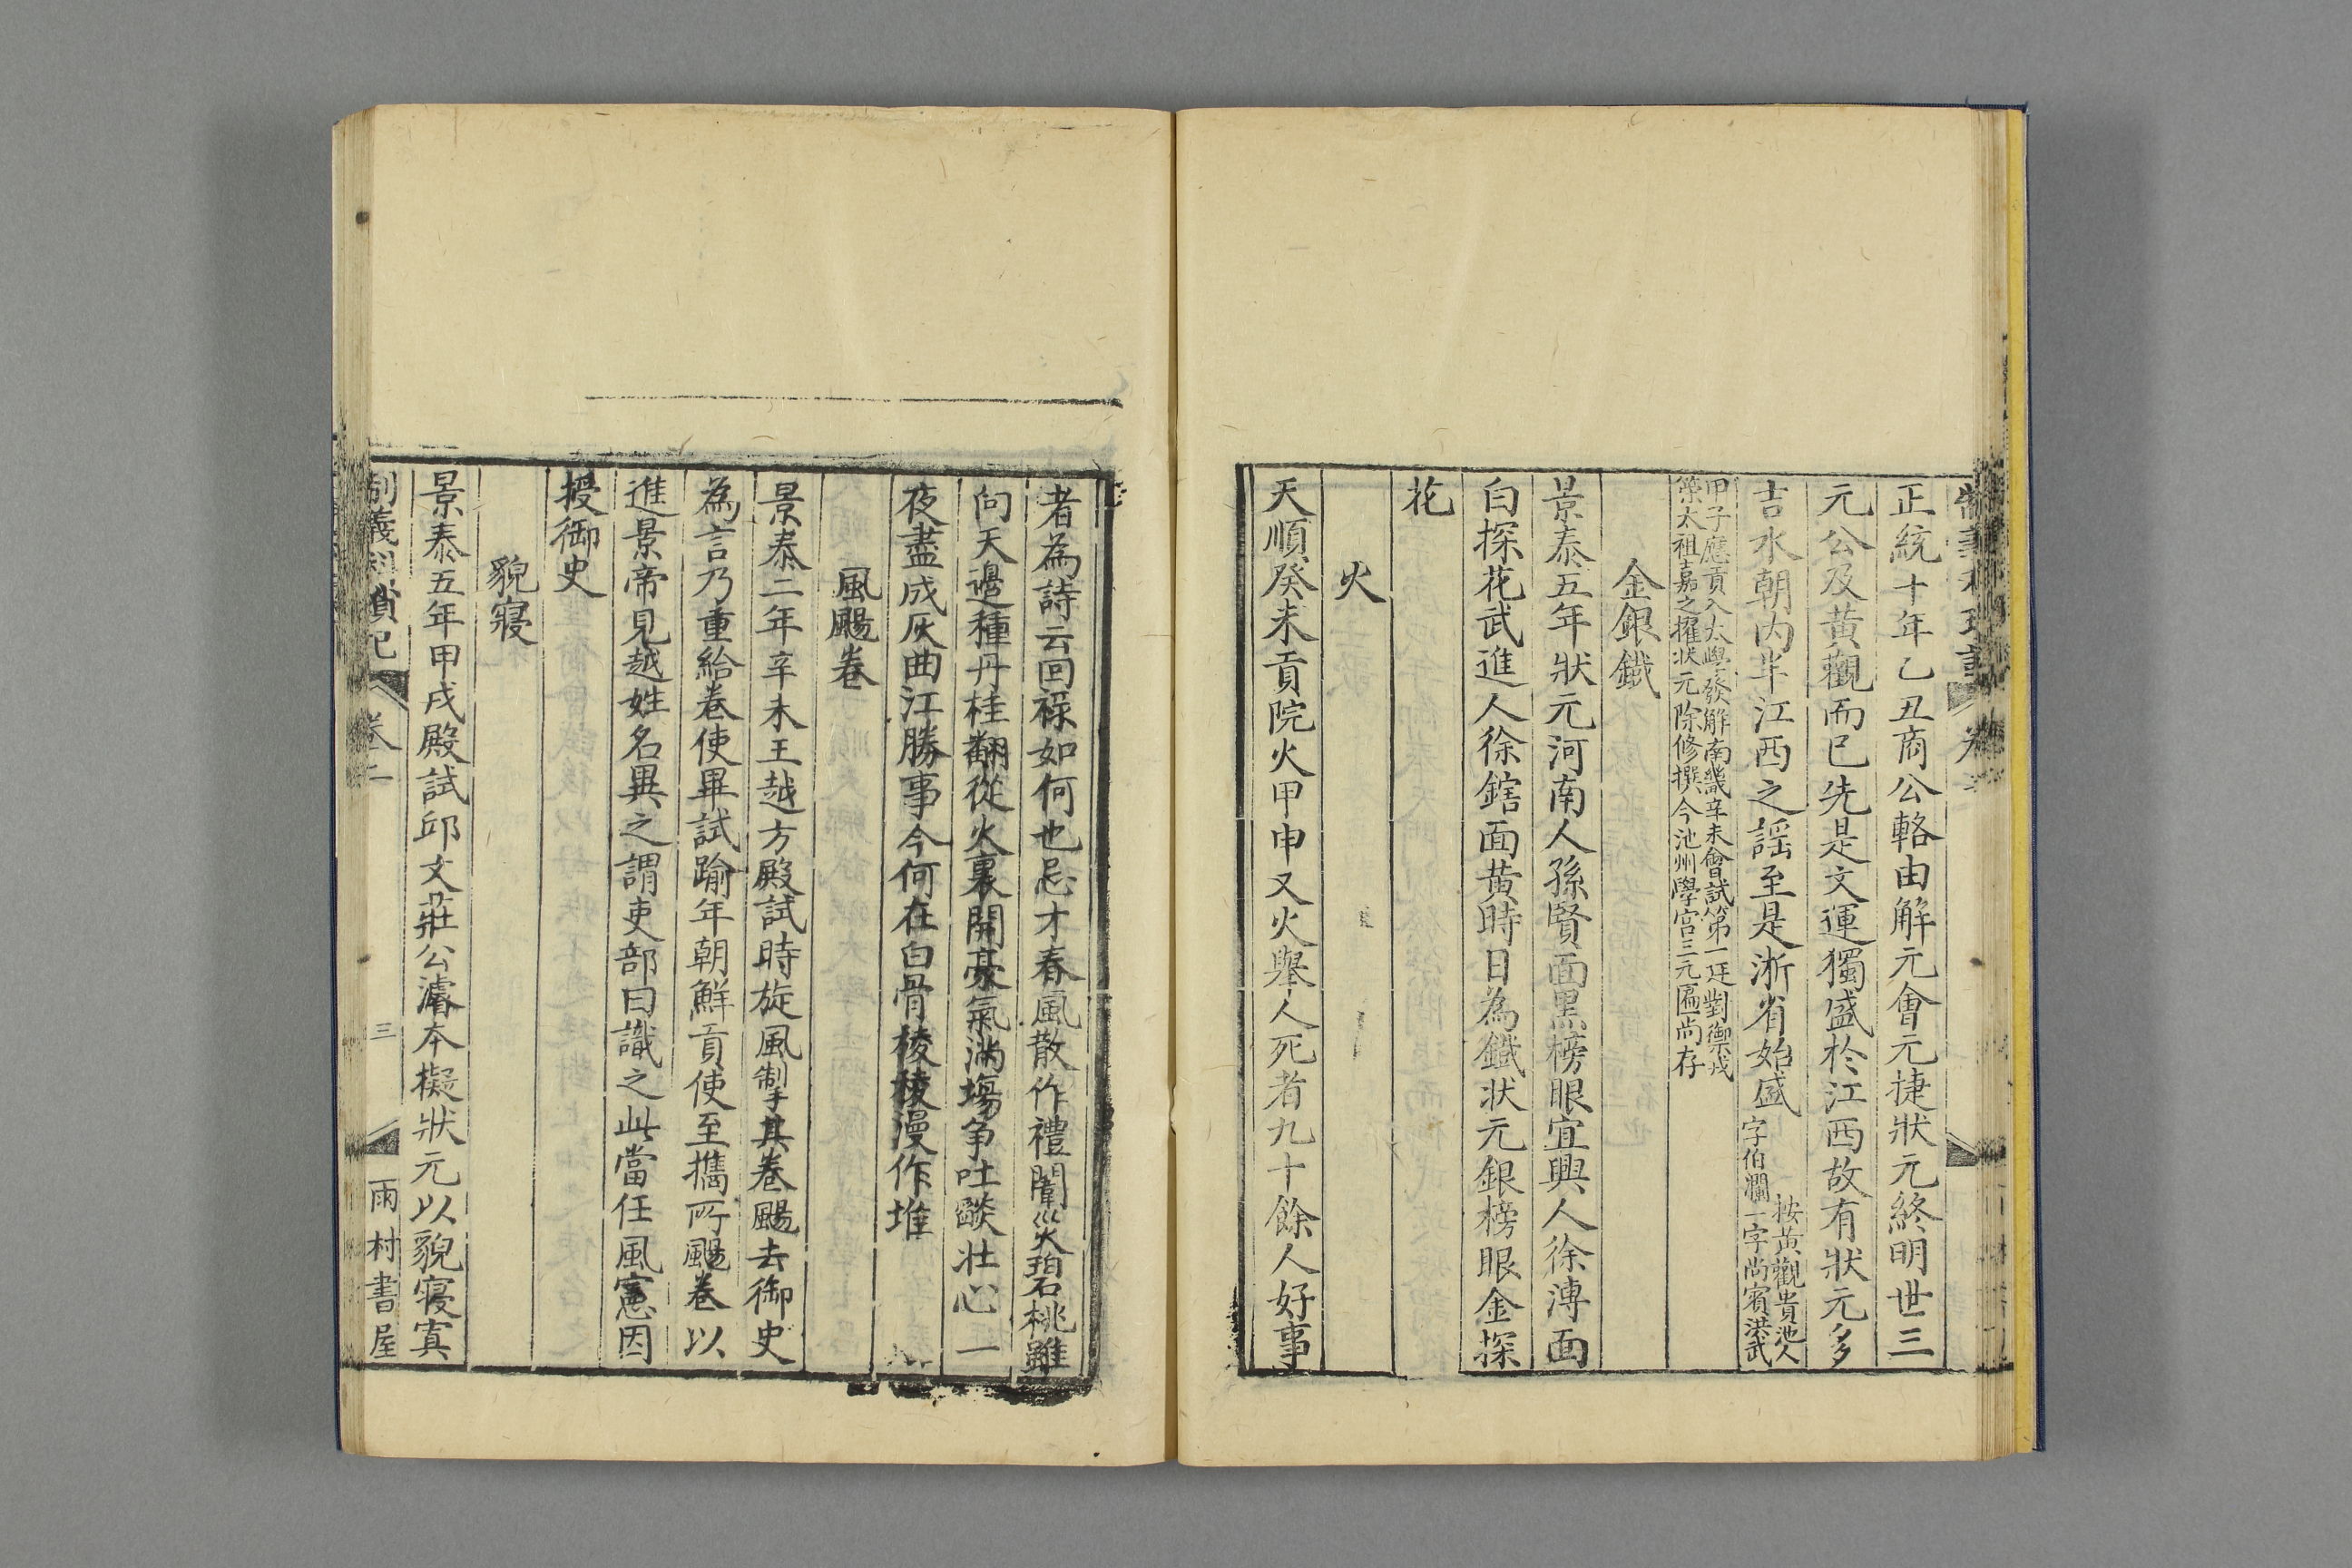 正統十年乙丑商公輅由解元會元捷狀元終明世三
元公及黃觀而已先是文運獨盛於江西故有狀元多
吉水朝內半江西之謡至是浙省始盛
按黃觀貴池人
字伯瀾一字尚賓洪武
甲子應貢入太學發解南畿辛未會試第一廷對禦戎
策太祖嘉之擢狀元除修撰今池州學宮三元匾尚存
金銀鐵
景泰五年狀元河南人孫賢面黑榜眼宜興人徐溥面
白探花武進人徐鎋面黃時日為鐵狀元銀榜眼金探
花
火
天順癸未貢院火甲申又火舉人死者九十餘人好事
者為詩云回祿如何也忌才春風散作禮闈災碧桃難
向天邊種丹桂翻從火裏開豪氣滿塲争吐燄壯心一
夜盡成灰曲江勝事今何在白骨稜稜漫作堆
風颺卷
景泰二年辛未王越方殿試時旋風掣其卷颺去御史
為言乃重給卷使畢試踰年朝鮮貢使至攜所颺卷以
進景帝見越姓名異之謂吏部曰識之此當任風憲因
授御史
貌寢
景泰五年甲戌殿試邱文莊公濬本擬狀元以貌寢寘
制義科瑣記 卷二 三 雨村書屋